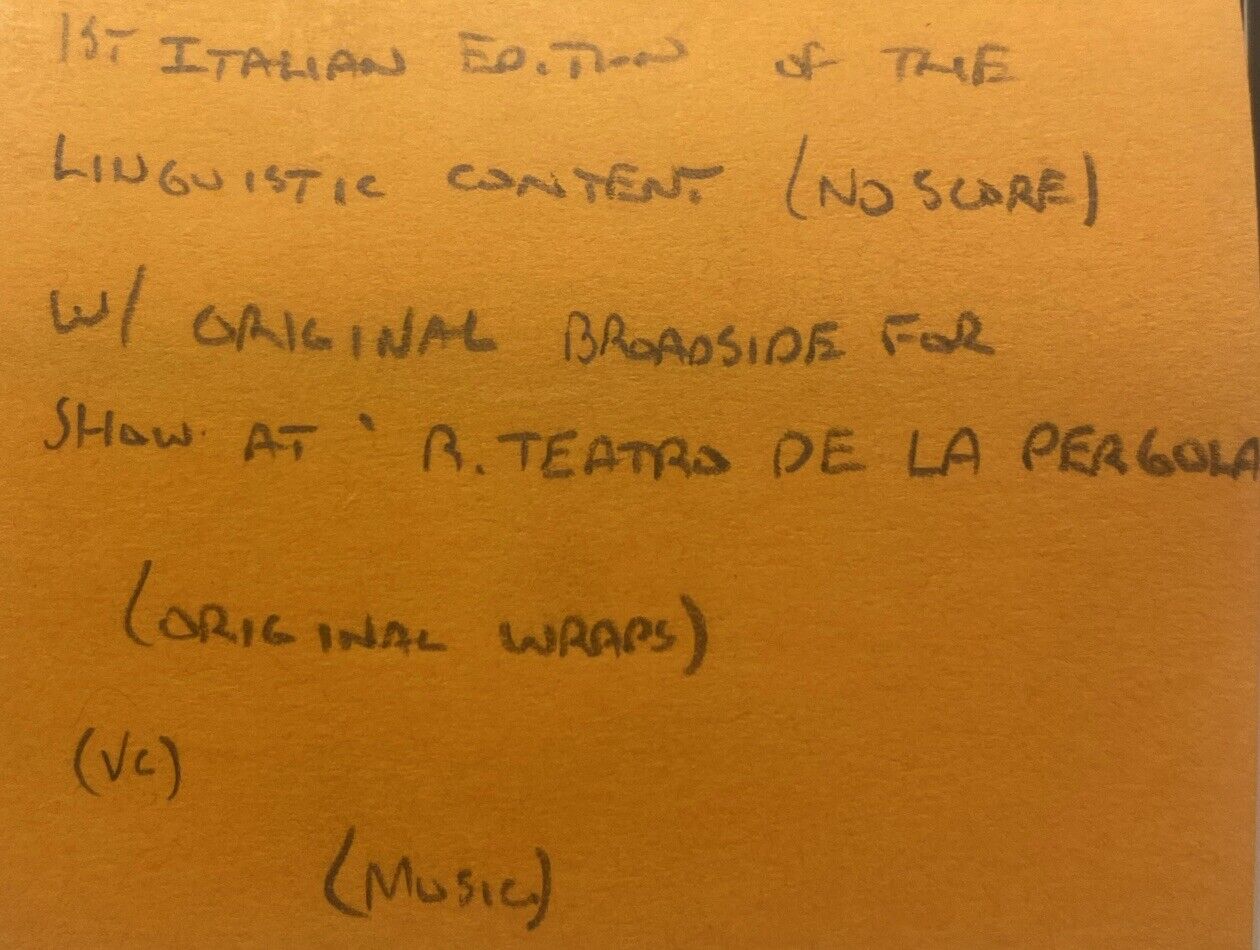 1ST ITALIAN EDITION of THE
LINGUISTIC CONTENT (NO SCORE)
W/ ORIGINAL BROADSIDE FOR
SHOW AT ' R. TEATRO DE LA PERGOLA
(ORIGINAL WRAPS)
(VG)
(MUSIC)